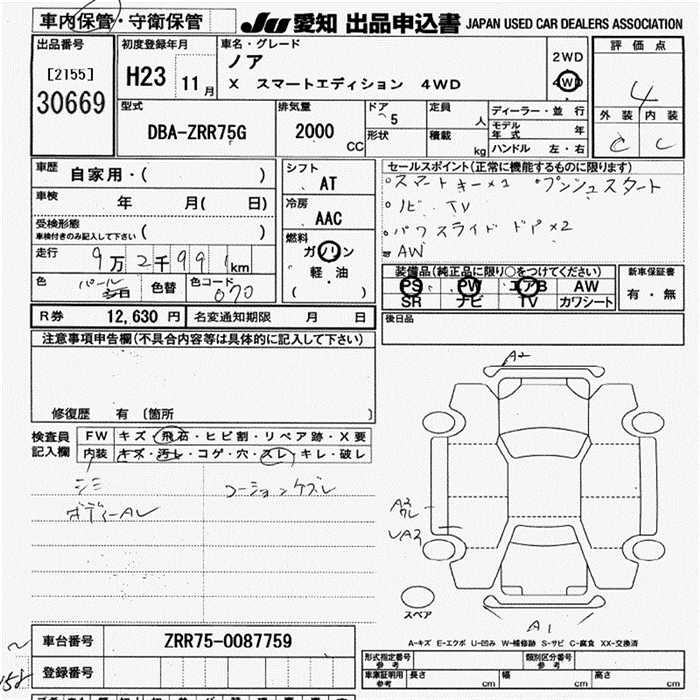 車内保管・守衛保管
JU 愛知 出品申込書 JAPAN USED CAR DEALERS ASSOCIATION
出品番号
[2155]
30669
初度登録年月
H23 11月
車名・グレード
ノア
X スマートエディション 4WD
2WD
4WD
評価点
4
外装 内装
C C
型式
DBA-ZRR75G
排気量
2000 CC
ドア
5
形状
定員
人
積載
kg
ディーラー・並 行
モデル年式 年
ハンドル 左・右
車歴
自家用・( )
車検
年 月( 日)
受検形態
車検付きのみ記入して下さい ( )
走行
9万2千991km
色
パール
色替
色コード
070
シフト
AT
冷房
AAC
燃料
ガソリン
軽・油
( )
セールスポイント(正常に機能するものに限ります)
スマートキー×2 プッシュスタート
ナビ TV
パワスライドドア×2
AW
装備品(純正品に限り○をつけてください)
PS PW エアB AW
SR ナビ TV カワシート
新車保証書
有・無
R券 12,630円 名変通知期限 月 日
後日品
注意事項申告欄(不具合内容等は具体的に記入して下さい)
修復歴 有 [箇所 ]
検査員記入欄
FW キズ・飛石・ヒビ割・リペア跡・X要
内装 キズ・汚レ・コゲ・穴・スレ・キレ・破レ
シミ
ボディーAレ
コーションケズレ
A2
A2
A1
スペア
A-キズ E-エクボ U-凹み W-補修跡 S-サビ C-腐食 XX-交換済
車台番号 ZRR75-0087759
登録番号
形式指定番号
参考
類別区分番号
参考
車庫証明用
参考
長さ cm 幅 cm 高さ cm